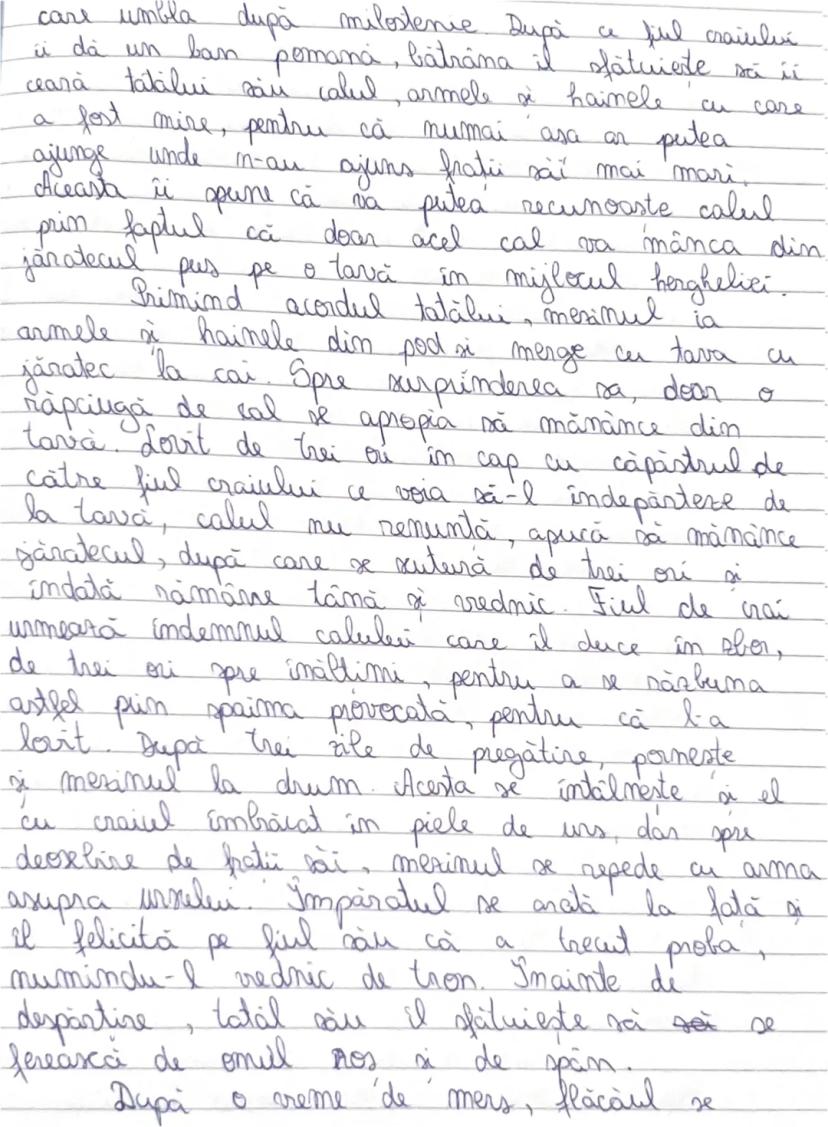 care umbla după milostenie. După ce fiul craiului
îi dă un ban pomană, bătrâna îl sfătuiește să îi
ceară tatălui său calul, armele și hainele cu care
a fost mire, pentru că numai așa ar putea
ajunge unde n-au ajuns frații săi mai mari.
Aceasta îi spune că va putea recunoaște calul
prin faptul că doar acel cal va mânca din
jăratecul pus pe o tavă în mijlocul hergheliei.
Primind acordul tatălui, mezinul ia
armele și hainele din pod și merge cu tava cu
jăratec la cai. Spre surprinderea sa, doar o
răpciugă de cal se apropia să mănânce din
tavă. Lovit de trei ori în cap cu căpăstrul de
către fiul craiului ce voia să-l îndepărteze de
la tavă, calul nu renunță, apucă să mănânce
jăratecul, după care se scutură de trei ori și
îndată rămâne tânăr și vrednic. Fiul de crai
urmează îndemnul calului care îl duce în zbor,
de trei ori spre înălțimi, pentru a se răzbuna
astfel prin spaima provocată, pentru că l-a
lovit. După trei zile de pregătire, pornește
și mezinul la drum. Acesta se întâlnește și el
cu craiul îmbrăcat în piele de urs, dar spre
deosebire de frații săi, mezinul se repede cu arma
asupra ursului. Împăratul se arată la față și
îl felicită pe fiul său că a trecut proba,
numindu-l vrednic de tron. Înainte de
despărțire, tatăl său îl sfătuiește să se
ferească de omul roș și de spân.
După o vreme de mers, flăcăul se